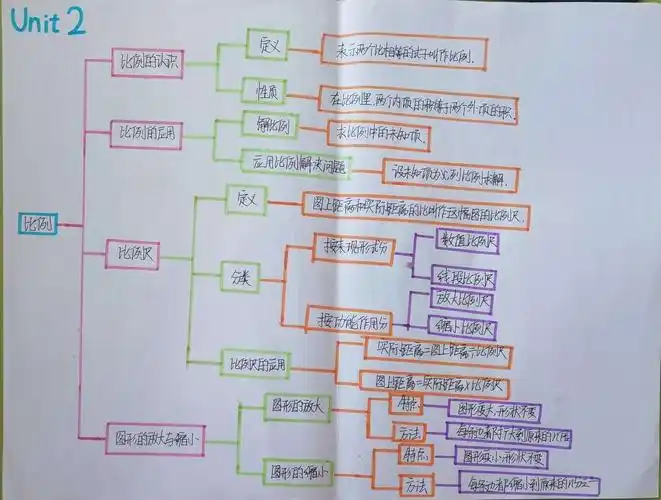 Unit 2
比例
比例的认识
定义
表示两个比相等的式子叫作比例.
性质
在比例里,两个内项的积等于两个外项的积.
比例的应用
解比例
求比例中的未知项.
应用比例解决问题
设未知项为x,列比例求解.
比例尺
定义
图上距离和实际距离的比叫作这幅图的比例尺.
分类
按表现形式分
数值比例尺
线段比例尺
按功能作用分
放大比例尺
缩小比例尺
比例尺的应用
实际距离=图上距离÷比例尺
图上距离=实际距离×比例尺
图形的放大与缩小
图形的放大
特点
图形变大,形状不变
方法
图形的缩小
特点
图形变小,形状不变
方法